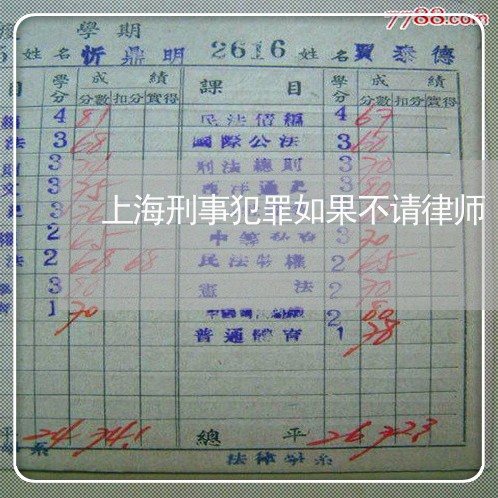 7788.com
度 學期
姓名 忻鼎明 2616 姓名 賈泰德
目 學分 成績 課目 學分 成績
分數 扣分 實得 分數 扣分 實得
4 81 民法債編 4 67
法 3 68 國際公法 3 60
3 刑法總則 3 70
3 75 西洋通史 3 80
上海刑事犯罪如果不请律师
2 65 3 70
法 2 68 68 民法物權 2 65
3 80 憲法 2 70
1 70 2 80
普通體育 1 78
平 24 74.1 總平 26 72.3
系 法律學系